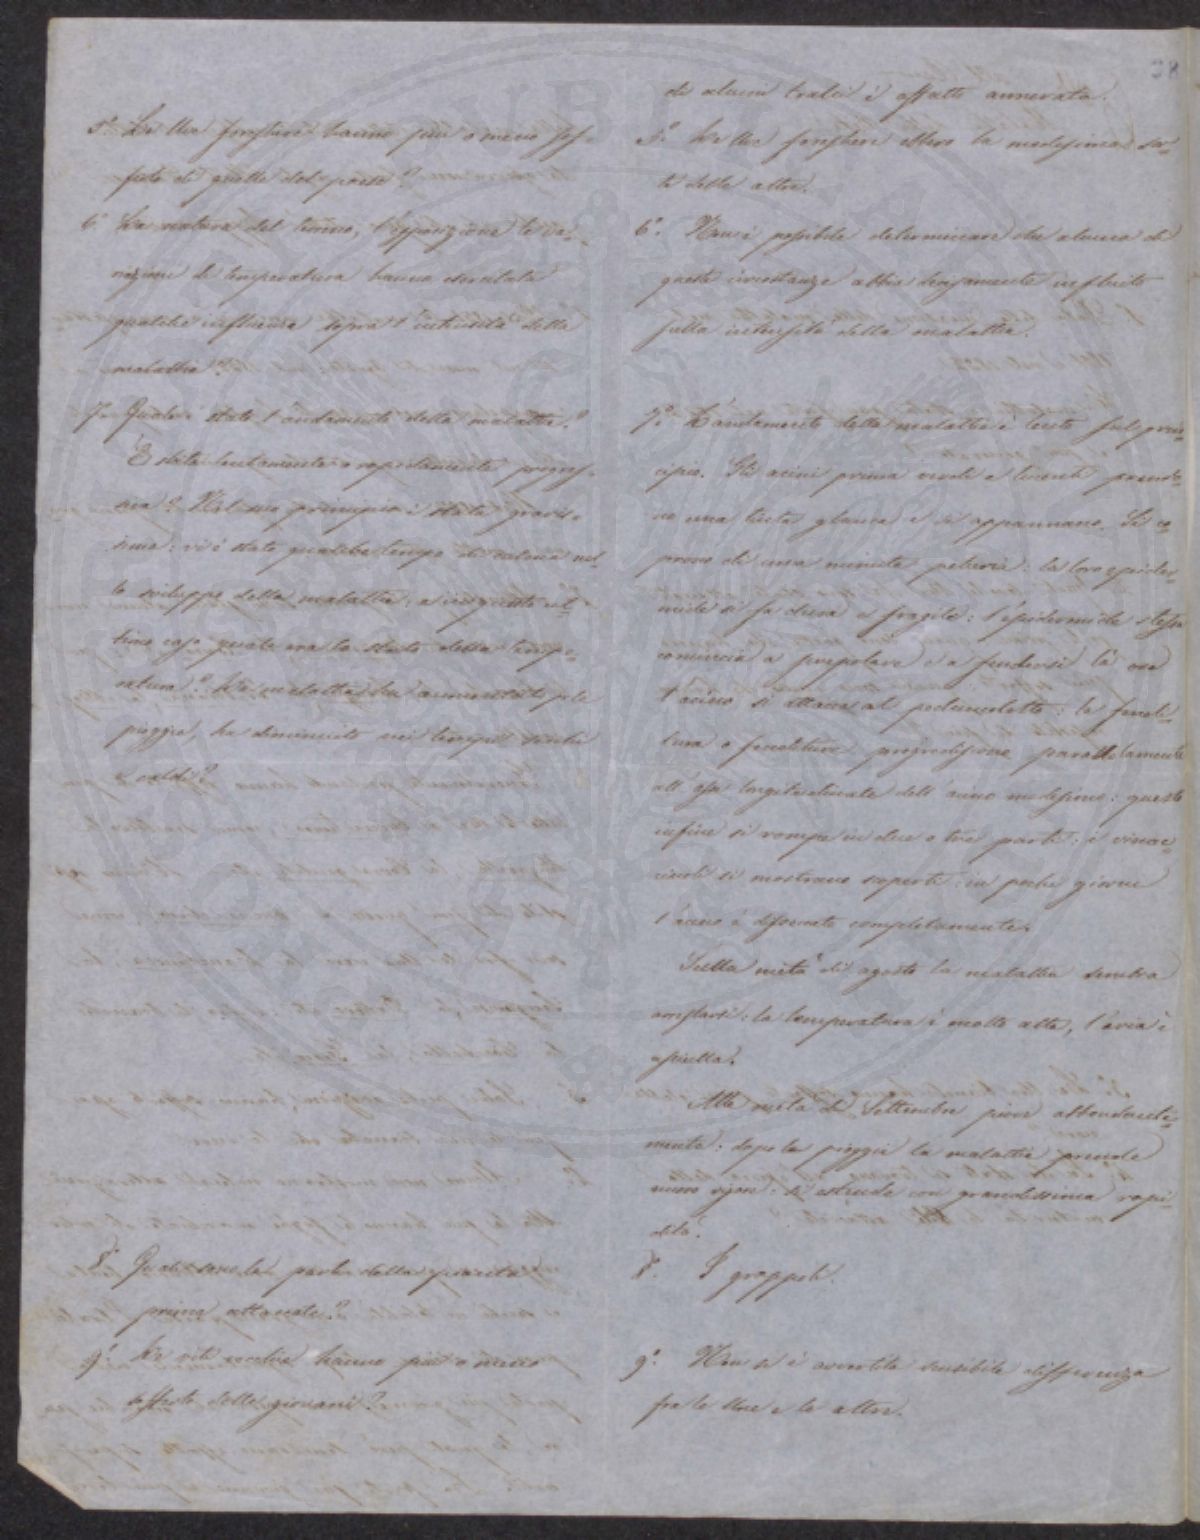 di alcuni tralci è affatto annerata.
5.° Le Uve forestiere hanno più o meno sof-
ferto di quelle del paese?
5.° Le Uve forestiere ebbero la medesima sor-
te delle altre.
6.° La natura del terreno, l'esposizione le va-
riazioni di temperatura hanno esercitato
qualche influenza sopra l'intensità della
malattia?
6.° Non è possibile determinare che alcuna di
queste circostanze abbia decisamente influito
sulla intensità della malattia.
7.° Quale è stato l'andamento della malattia?
È stata lentamente o rapidamente progres-
siva? Nel suo principio è stata gravis-
sima: vi è stato qualche tempo di sosta nel-
lo sviluppo della malattia: e in questo ul-
timo caso quale era lo stato della tempe-
ratura? La malattia ha aumentato per le
pioggie, ha diminuito nei tempi asciutti
e caldi?
7.° L'andamento della malattia è lento sul prin-
cipio. Gli acini prima verdi e lucenti prendo-
no una tinta glauca e si appannano. Si co-
prono di una minuta peluria: la loro epider-
mide si fa dura e fragile: l'epidermide stessa
comincia a screpolare e a fendersi là ove
l'acino si attacca al peduncoletto: la fendi-
tura o fenditure progrediscono parallelamente
all'asse longitudinale dell'acino medesimo: questo
infine si rompe in due o tre parti: i vinac-
cioli si mostrano scoperti: in pochi giorni
l'acino è disseccato completamente.
Sulla metà di agosto la malattia sembra
arrestarsi: la temperatura è molto alta, l'aria è
asciutta.
Alla metà di Settembre piove abbondante-
mente: dopo la pioggia la malattia prende
nuovo vigore: si estende con grandissima rapi-
dità.
8.° Quali sono le parti della pianta
prima attaccate?
8.° I grappoli.
9.° Le viti vecchie hanno più o meno
sofferto delle giovani?
9.° Non si è avvertita sensibile differenza
fra le une e le altre.